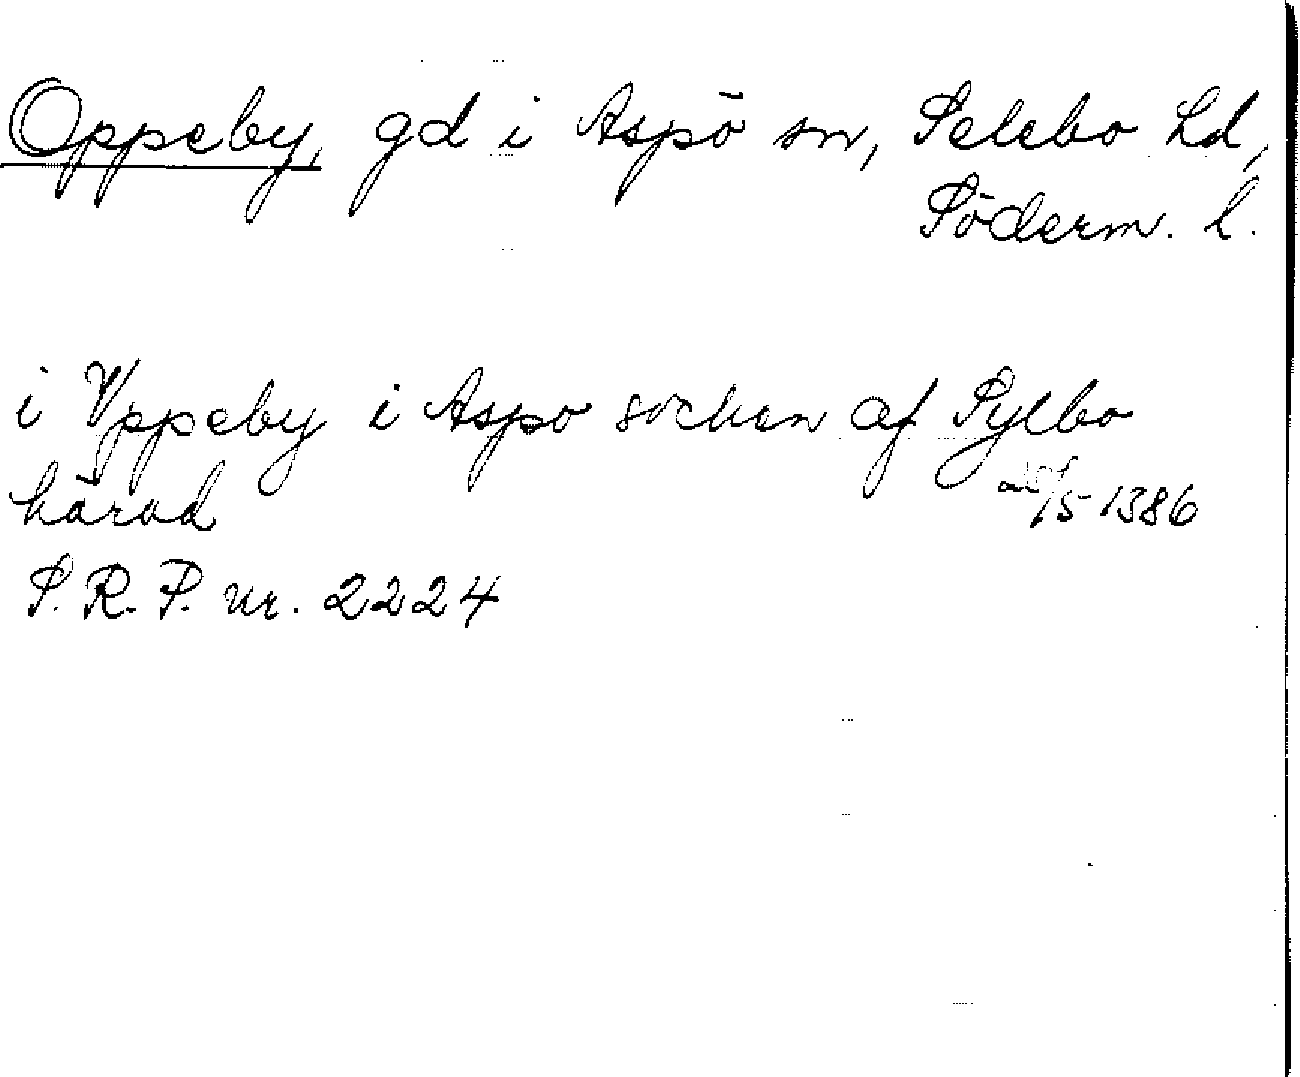 Oppeby, gd i Aspö sn, Selebo hd,
Söderm. l.
i Vppeby i Aspo sochen af Sylbo
härad
/5 1386
S. R. P. nr. 2224